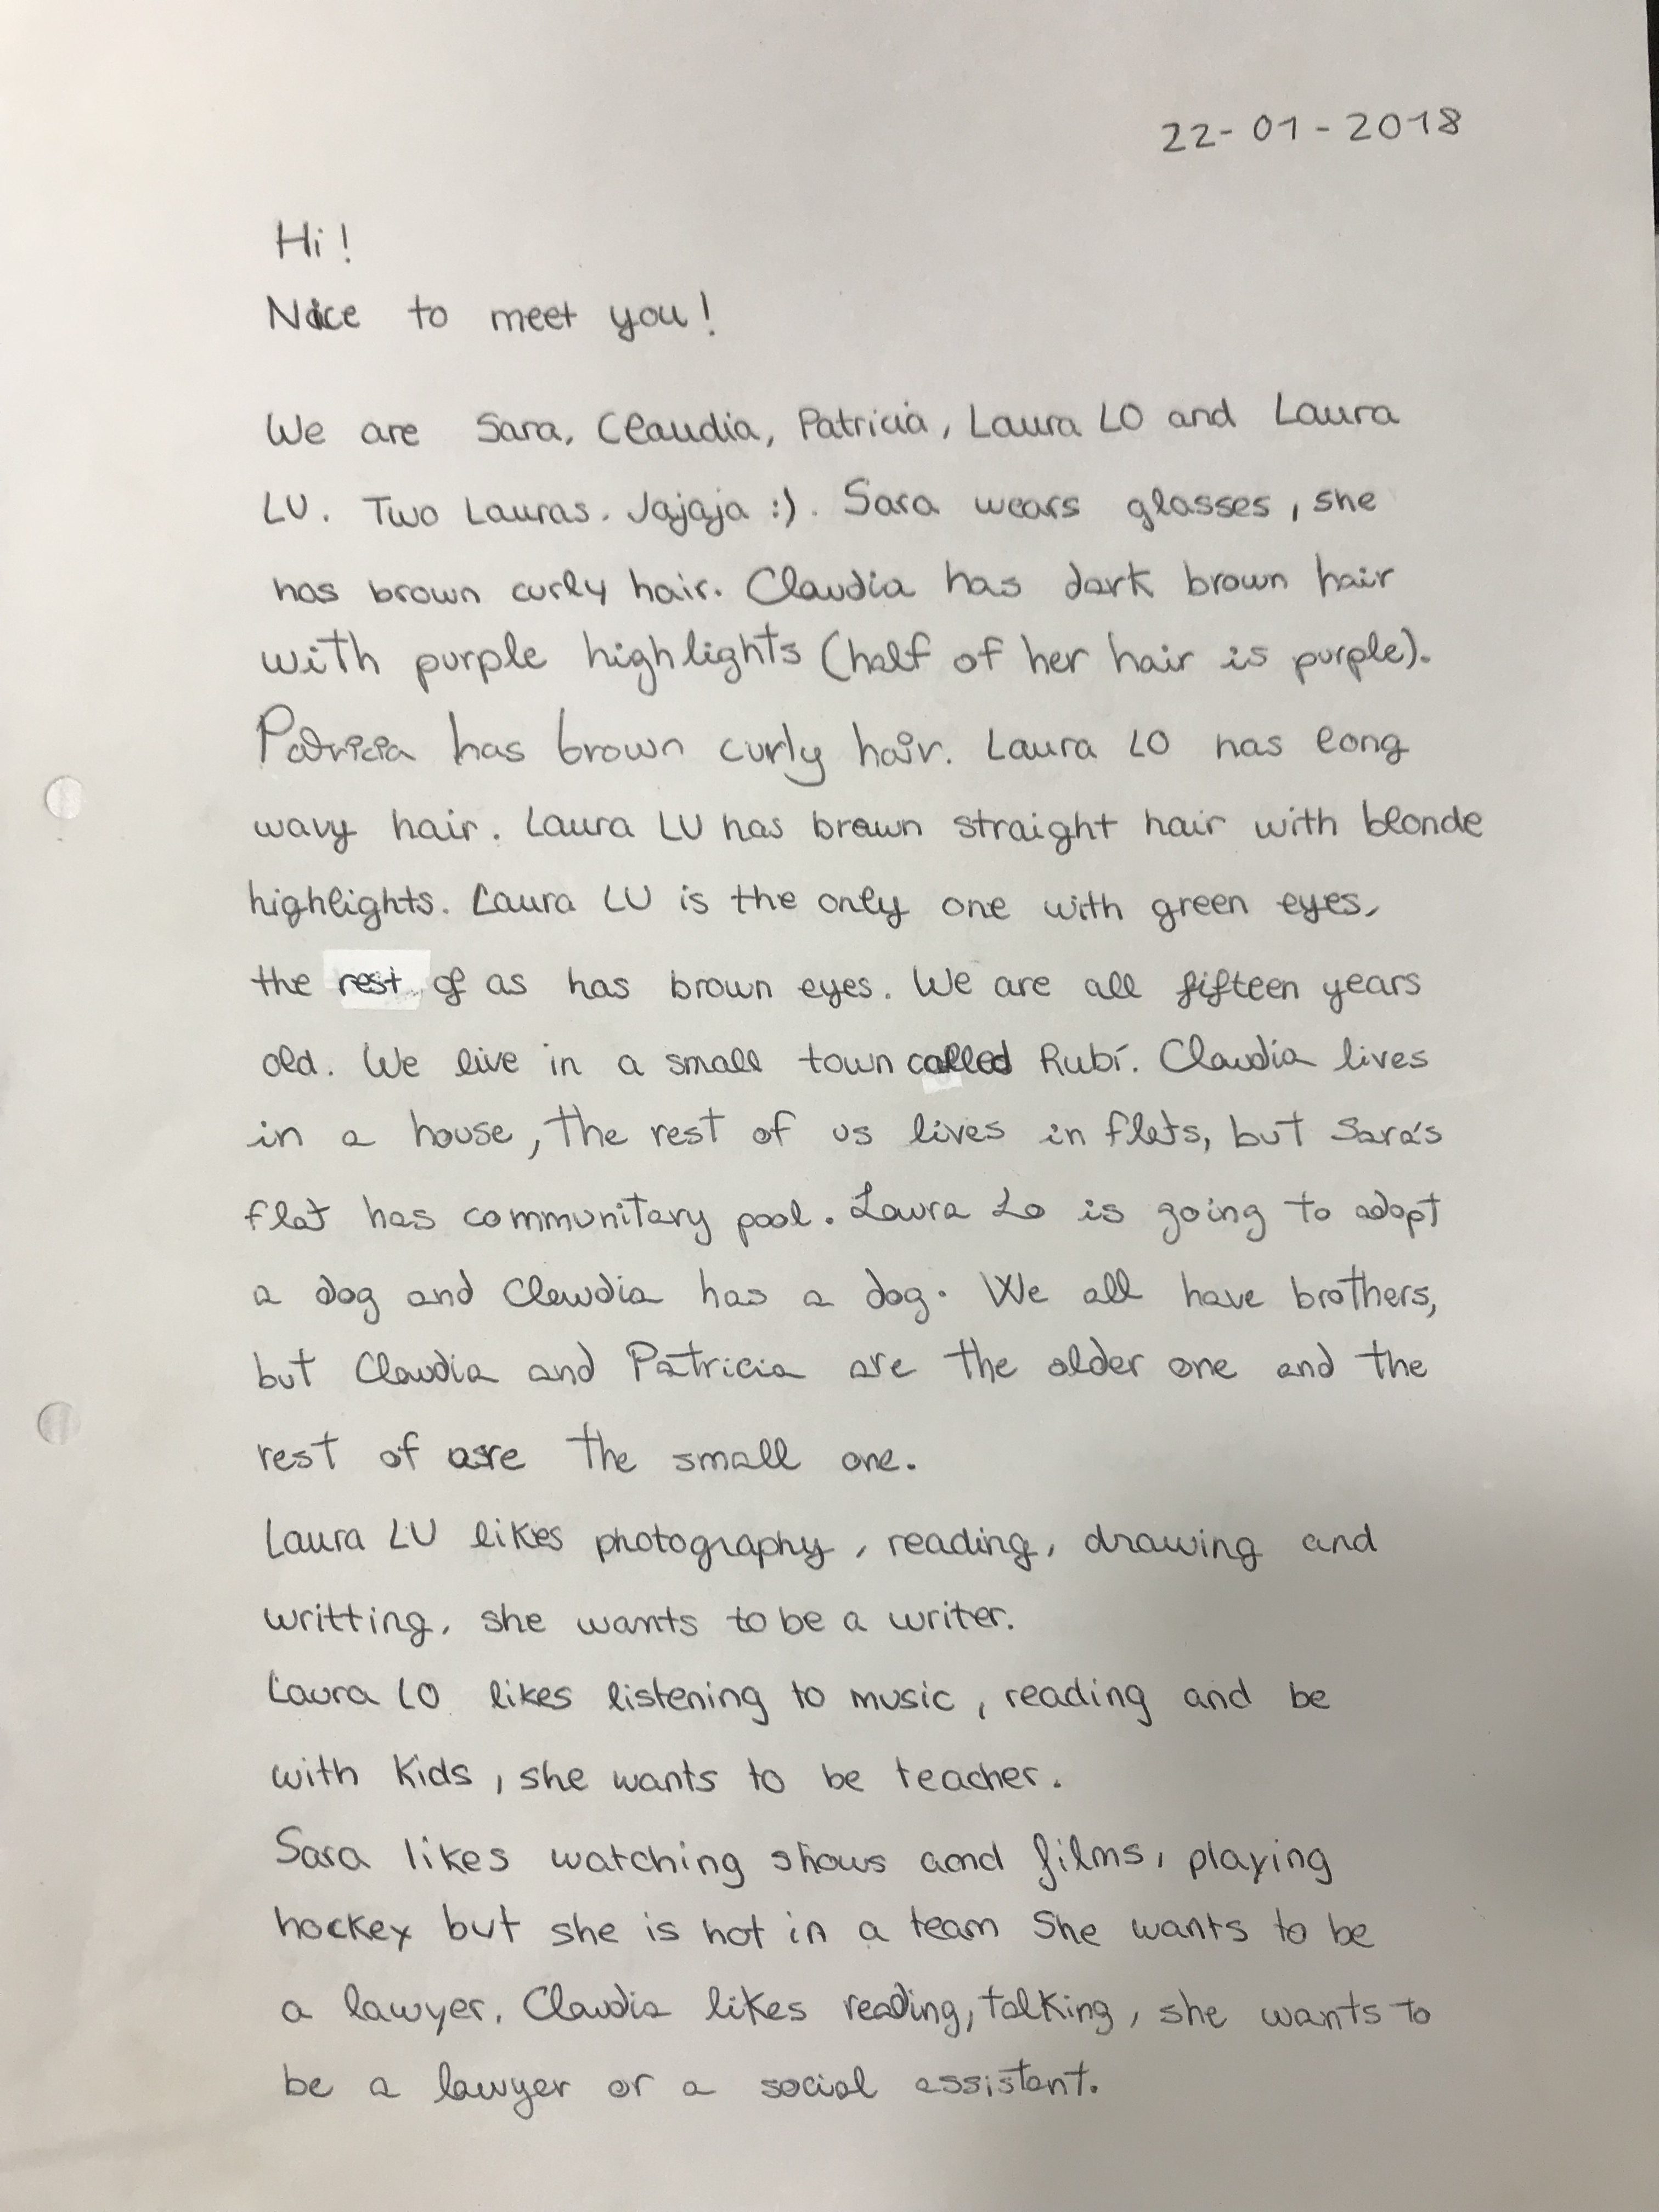 22-01-2018
Hi!
Nice to meet you!
We are Sara, Claudia, Patricia, Laura LO and Laura
LU. Two Lauras. Jajaja :). Sara wears glasses, she
has brown curly hair. Claudia has dark brown hair
with purple highlights (half of her hair is purple).
Patricia has brown curly hair. Laura LO has long
wavy hair. Laura LU has brown straight hair with blonde
highlights. Laura LU is the only one with green eyes,
the rest of as has brown eyes. We are all fifteen years
old. We live in a small town called Rubí. Claudia lives
in a house, the rest of us lives in flats, but Sara's
flat has communitary pool. Laura Lo is going to adopt
a dog and Claudia has a dog. We all have brothers,
but Claudia and Patricia are the older one and the
rest of are the small one.
Laura LU likes photography, reading, drawing and
writting, she wants to be a writer.
Laura LO likes listening to music, reading and be
with kids, she wants to be teacher.
Sara likes watching shows and films, playing
hockey but she is not in a team She wants to be
a lawyer. Claudia likes reading, talking, she wants to
be a lawyer or a social assistant.